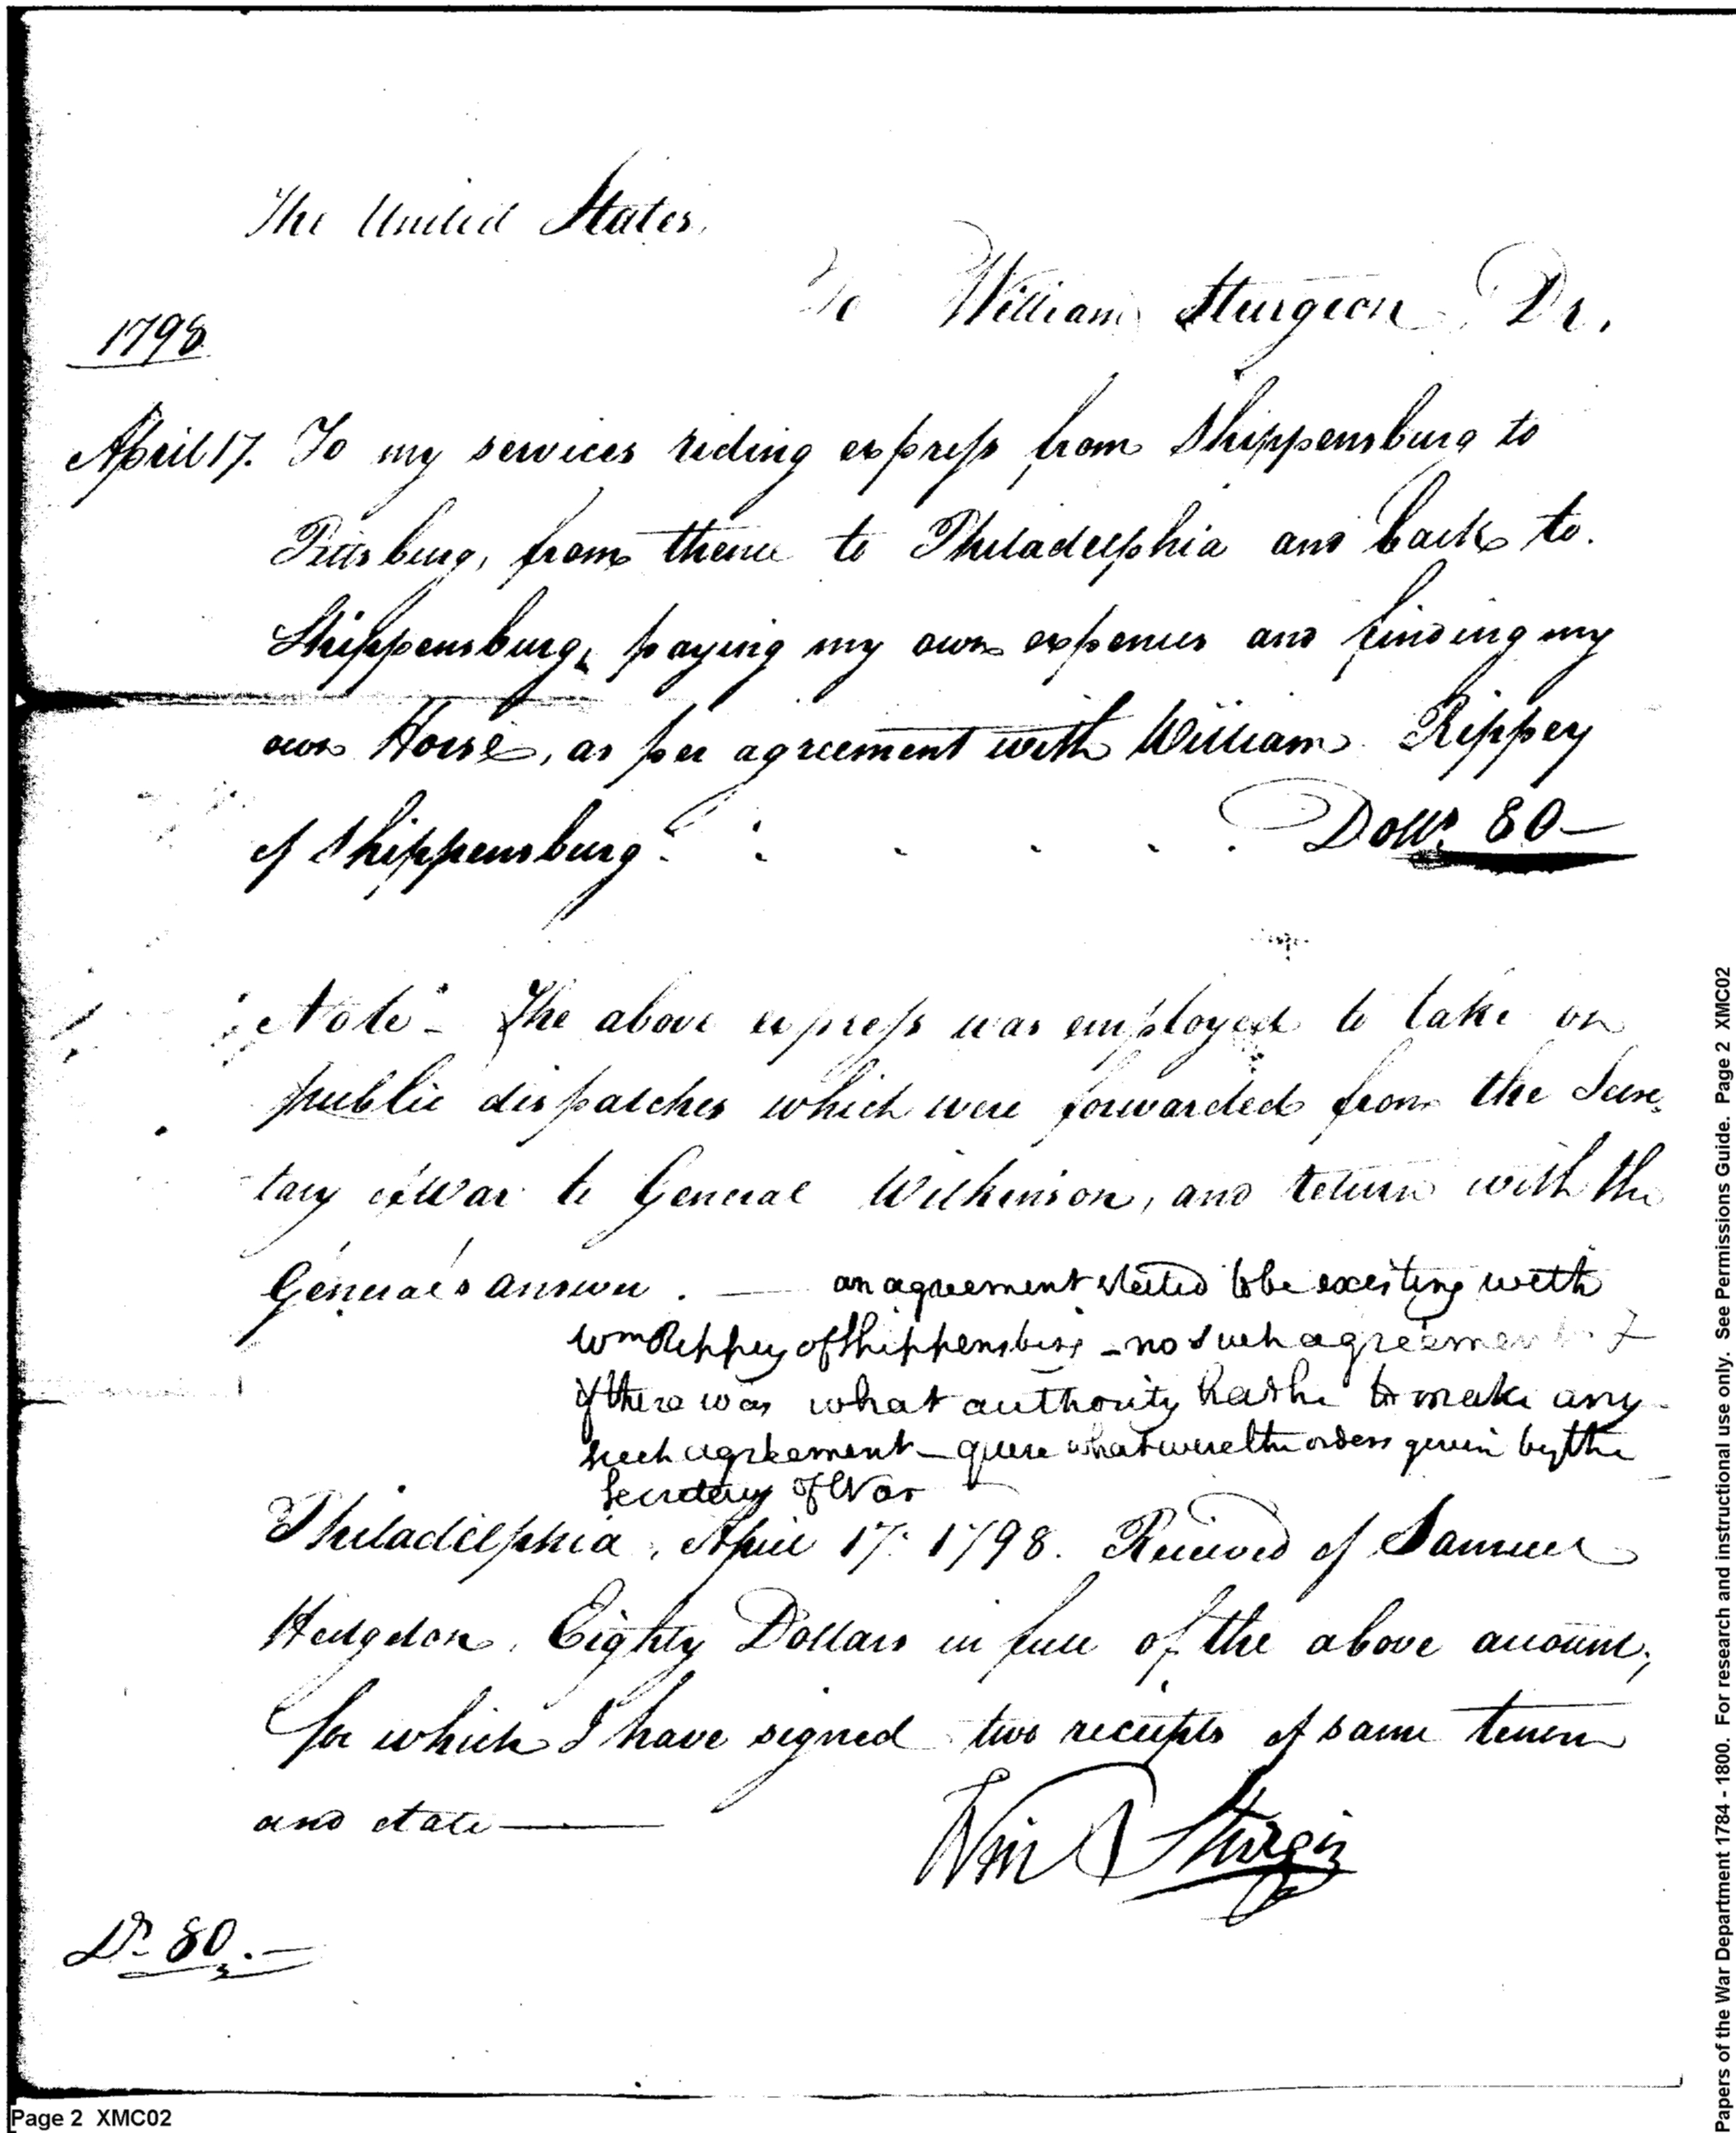 The United States,
To William Sturgeon Dr.
1798
April 17. To my services riding express from Shippensburg to
Pittsburg, from thence to Philadelphia and back to
Shippensburg, paying my own expenses and finding my
own Horse, as per agreement with William Rippey
of Shippensburg Dolls. 80—
Note - The above express was employed to take on
public dispatches which were forwarded from the Secre-
tary of War to General Wilkinson, and return with the
General's answer. — an agreement stated to be existing with
Wm Rippey of Shippensburg - no such agreement &
if there was what authority has he to make any
such agreement - quere what were the orders given by the
Secretary of War
Philadelphia, April 17. 1798. Received of Samuel
Hodgdon, Eighty Dollars in full of the above account,
for which I have signed two receipts of same tenor
and date —
Wm Sturgin
Ds 80.—
Page 2 XMC02
Papers of the War Department 1784 - 1800. For research and instructional use only. See Permissions Guide. Page 2 XMC02